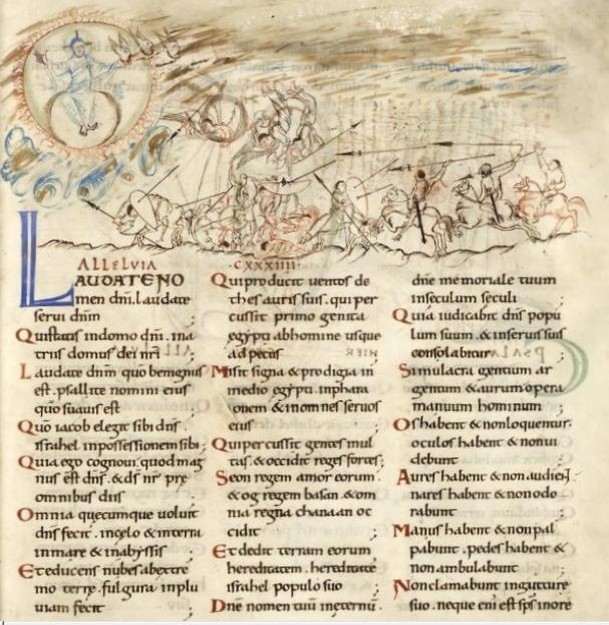 ALLELVIA
·CXXXIIII·
LAUDATE NO
men dni. laudate
serui dnm ;
Qui statis indomo dni. ina
triis domus dei nri ;
Laudate dnm quo benignus
est. psallite nomini eius
quo suauis est
Quo iacob elegit sibi dns.
israhel inpossessionem sibi ;
Quia ego cognoui. quod mag
nus est dns. & ds nr pre
omnibus diis
Omnia quecumque uoluit
dns fecit. incelo & interra
inmare & inabyssis ;
Et educens nubes abextre
mo terre. fulgura inplu
uiam fecit ;
Qui producit uentos de
thesauris suis. qui per
cussit primo genita
egypti abhomine usque
ad pecus ;
Misit signa & prodigia in
medio egypti. inphara
onem & inomnes seruos
eius ;
Qui percussit gentes mul
tas. & occidit reges fortes ;
Seon regem amor eorum.
& og regem basan. & om
nia regna chanaan oc
cidit ;
Et dedit terram eorum
hereditatem. hereditate
israhel populo suo ;
Dne nomen tuu ineternu.
dne memoriale tuum
inseculum seculi ;
Quia iudicabit dns popu
lum suum. & inseruis suis
consolabitur ;
Simulacra gentium ar
gentum & aurum. opera
manuum hominum ;
Os habent & nonloquentur.
oculos habent & nonui
debunt ;
Aures habent & non audient.
nares habent & non odo
rabunt ;
Manus habent & non pal
pabunt. pedes habent &
non ambulabunt ;
Non clamabunt ingutture
suo. neque eni est sps inore